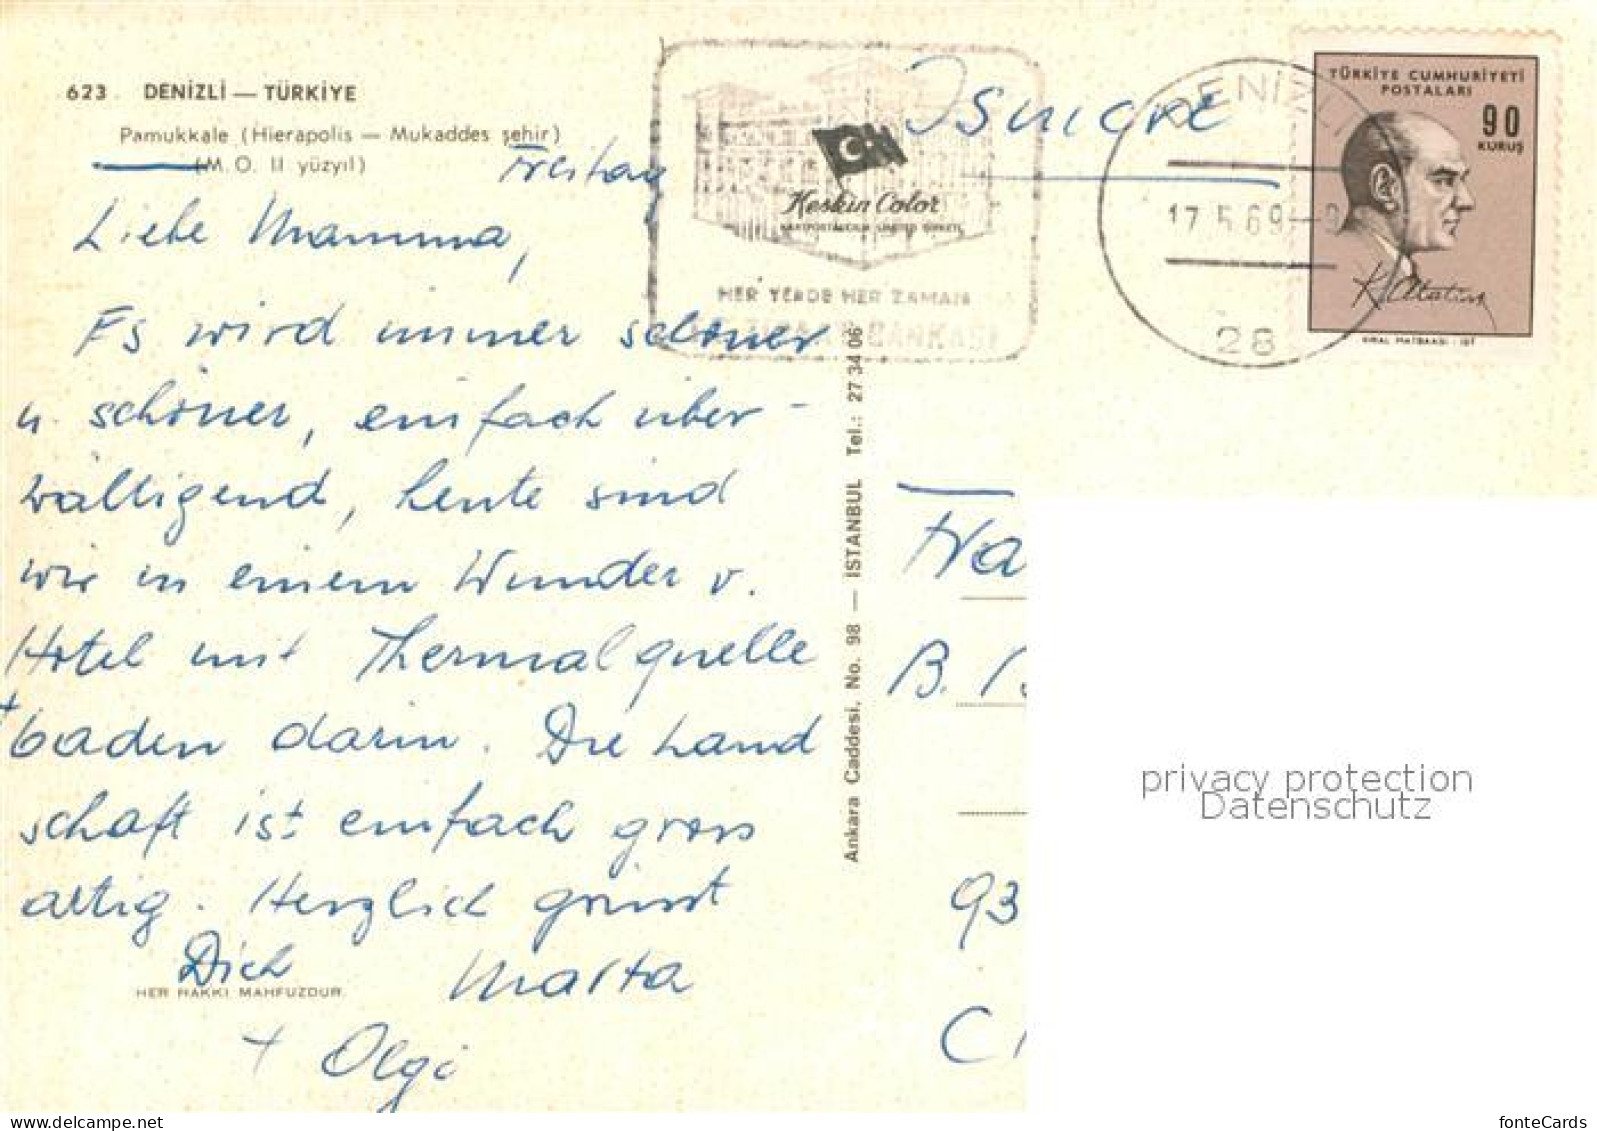 623 DENİZLİ — TÜRKİYE
Pamukkale (Hierapolis — Mukaddes şehir)
(M. O. II yüzyıl)
Freitag
Liebe Mamma,
Es wird immer schöner
u. schöner, einfach über-
wältigend, heute sind
wir in einem Wunder v.
Hotel mit Thermalquelle
+ baden darin. Die Land
schaft ist einfach gross
artig. Herzlich grüsst
Dich Marta
HER HAKKI MAHFUZDUR.
+ Olgi
Keskin Color
KARTPOSTALCILIK LIMITED ŞİRKETİ
HER YERDE HER ZAMAN
BANKASI
Ankara Caddesi, No. 98 — İSTANBUL Tel.: 27 34 06
DENİZLİ
17.5.69-9
28
TÜRKİYE CUMHURİYETİ
POSTALARI
90
KURUŞ
K. Atatürk
KIRAL MATBAASI - İST
Isuicre
Fra
B.
93
C
privacy protection
Datenschutz
fonteCards